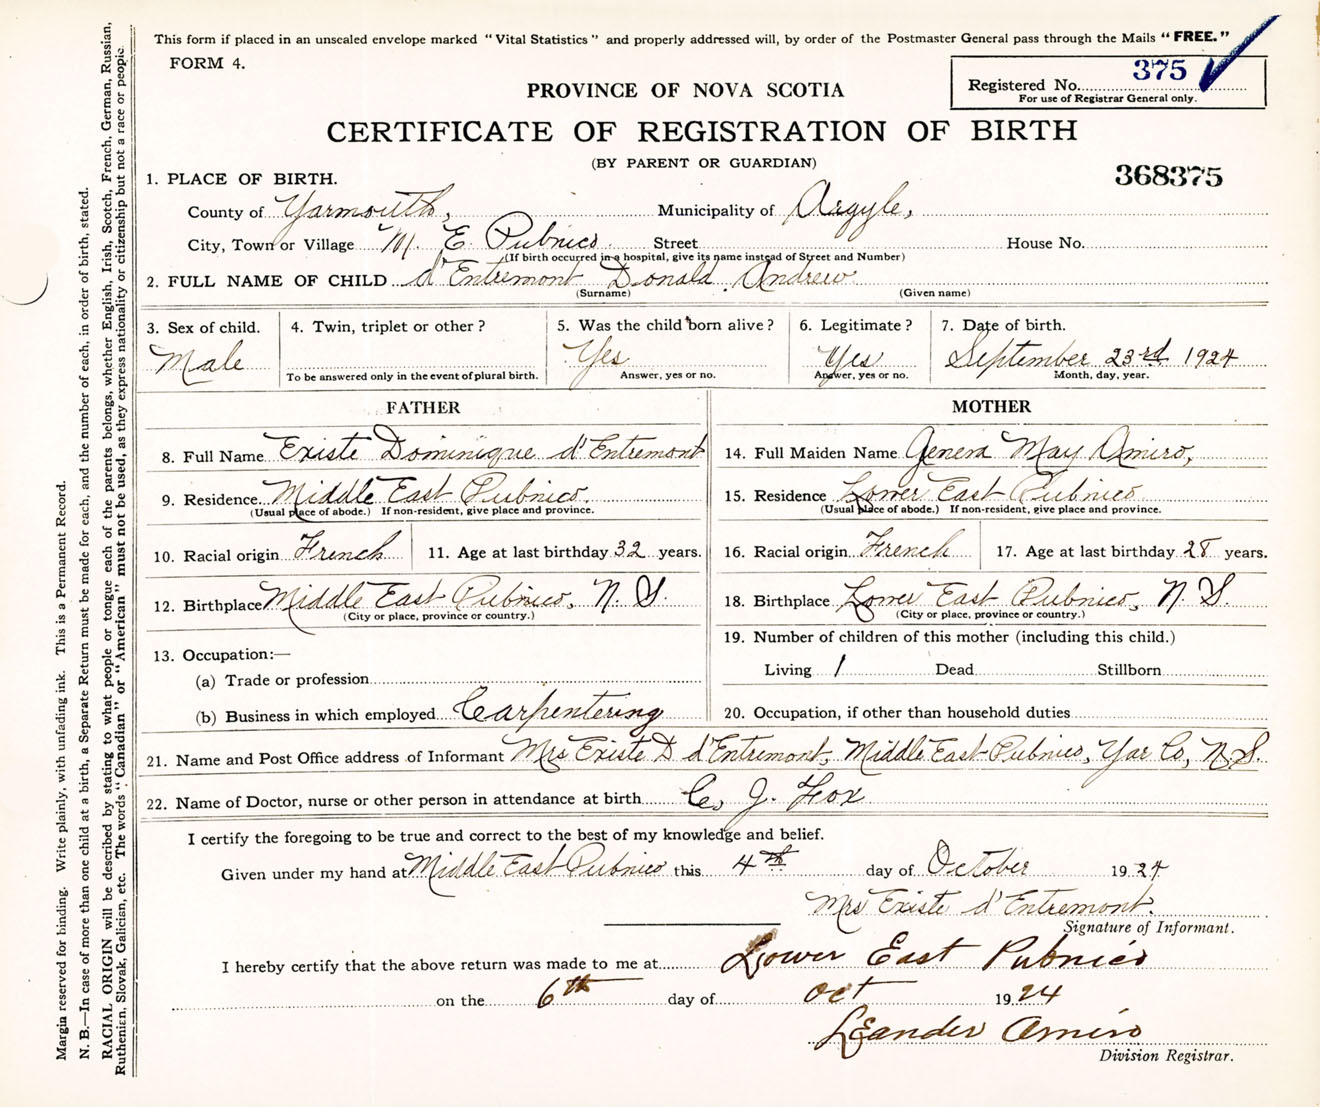 This form if placed in an unsealed envelope marked "Vital Statistics" and properly addressed will, by order of the Postmaster General pass through the Mails "FREE."
FORM 4.
Registered No. 375
For use of Registrar General only.
PROVINCE OF NOVA SCOTIA
CERTIFICATE OF REGISTRATION OF BIRTH
(BY PARENT OR GUARDIAN)
368375
1. PLACE OF BIRTH.
County of Yarmouth, Municipality of Argyle,
City, Town or Village M. E. Pubnico Street House No.
(If birth occurred in a hospital, give its name instead of Street and Number)
2. FULL NAME OF CHILD d'Entremont Donald Andrew
(Surname) (Given name)
3. Sex of child. 4. Twin, triplet or other? 5. Was the child born alive? 6. Legitimate? 7. Date of birth.
Male Yes Yes September 23rd 1924
To be answered only in the event of plural birth. Answer, yes or no. Answer, yes or no. Month, day, year.
FATHER MOTHER
8. Full Name Existe Dominique d'Entremont 14. Full Maiden Name May Amiro,
9. Residence Middle East Pubnico 15. Residence Lower East Pubnico
(Usual place of abode.) If non-resident, give place and province. (Usual place of abode.) If non-resident, give place and province.
10. Racial origin French 11. Age at last birthday 32 years. 16. Racial origin French 17. Age at last birthday 28 years.
12. Birthplace Middle East Pubnico, N. S. 18. Birthplace Lower East Pubnico, N. S.
(City or place, province or country.) (City or place, province or country.)
19. Number of children of this mother (including this child.)
13. Occupation:—
Living 1 Dead Stillborn
(a) Trade or profession
(b) Business in which employed Carpentering 20. Occupation, if other than household duties
21. Name and Post Office address of Informant Mrs Existe D d'Entremont, Middle East Pubnico, Yar Co, N.S.
22. Name of Doctor, nurse or other person in attendance at birth C. J. Fox
I certify the foregoing to be true and correct to the best of my knowledge and belief.
Given under my hand at Middle East Pubnico this 4th day of October 1924
Mrs Existe d'Entremont.
Signature of Informant.
I hereby certify that the above return was made to me at Lower East Pubnico
on the 6th day of Oct 1924
Leander Amiro
Division Registrar.
Margin reserved for binding. Write plainly, with unfading ink. This is a Permanent Record.
N. B.—In case of more than one child at a birth, a Separate Return must be made for each, and the number of each, in order of birth, stated.
RACIAL ORIGIN will be described by stating to what people or tongue each of the parents belongs, whether English, Irish, Scotch, French, German, Russian,
Ruthenian, Slovak, Galician, etc. The words "Canadian" or "American" must not be used, as they express nationality or citizenship but not a race or people.